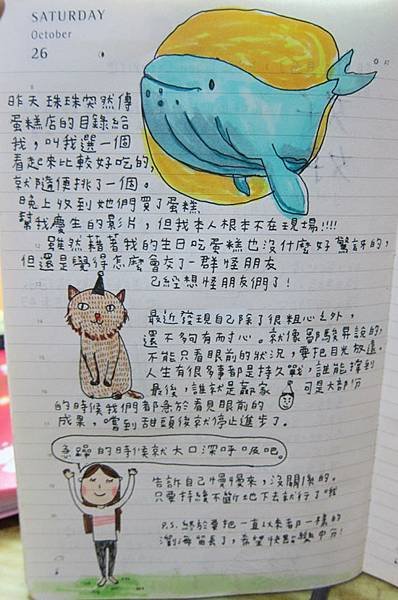 SATURDAY
October
26
昨天珠珠突然傳
蛋糕店的目錄給
我,叫我選一個
看起來比較好吃的,
就隨便挑了一個。
晚上收到她們買了蛋糕
幫我慶生的影片,但我本人根本不在現場!!!!
雖然藉著我的生日吃蛋糕也沒什麼好驚訝的,
但還是覺得怎麼會交了一群怪朋友
已經想怪朋友們了!
最近發現自己除了很粗心之外,
還不夠有耐心。就像鄒駿昇說的,
不能只看眼前的狀況,要把目光放遠。
人生有很多事都是持久戰,誰能撐到
最後,誰就是贏家 可是大部分
的時候我們都急於看見眼前的
成果,嚐到甜頭後就停止進步了。
急躁的時候就大口深呼吸吧。
告訴自己慢慢來,沒關係的。
只要持續不斷地下去就行了
P.S. 終於要把一直以來都一樣的
瀏海留長了,希望快點變中分!